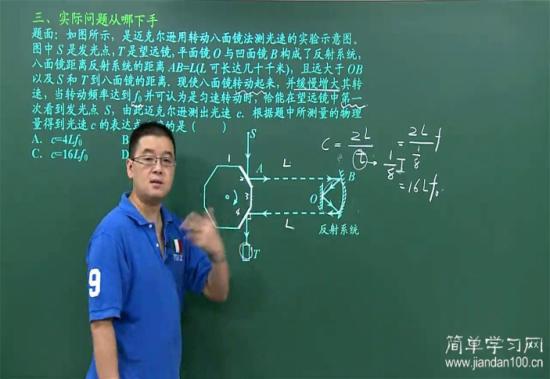 三、实际问题从哪下手
题面：如图所示，是迈克尔逊用转动八面镜法测光速的实验示意图。
图中 S 是发光点，T 是望远镜，平面镜 O 与凹面镜 B 构成了反射系统，
八面镜距离反射系统的距离 AB=L(L 可长达几十千米)，且远大于 OB
以及 S 和 T 到八面镜的距离．现使八面镜转动起来，并缓慢增大其转
速，当转动频率达到 f₀并可认为是匀速转动时，恰能在望远镜中第一
次看到发光点 S，由此迈克尔逊测出光速 c．根据题中所测量的物理
量得到光速 c 的表达式 的是（ ）
A．c=4Lf₀
C．c=16Lf₀
C = 2L/t = 2L/
1/8 T
=16Lf₀
S
1
2
3
4
A
L
B
O
O
L
T
反射系统
9
简单学习网
www.jiandan100.cn